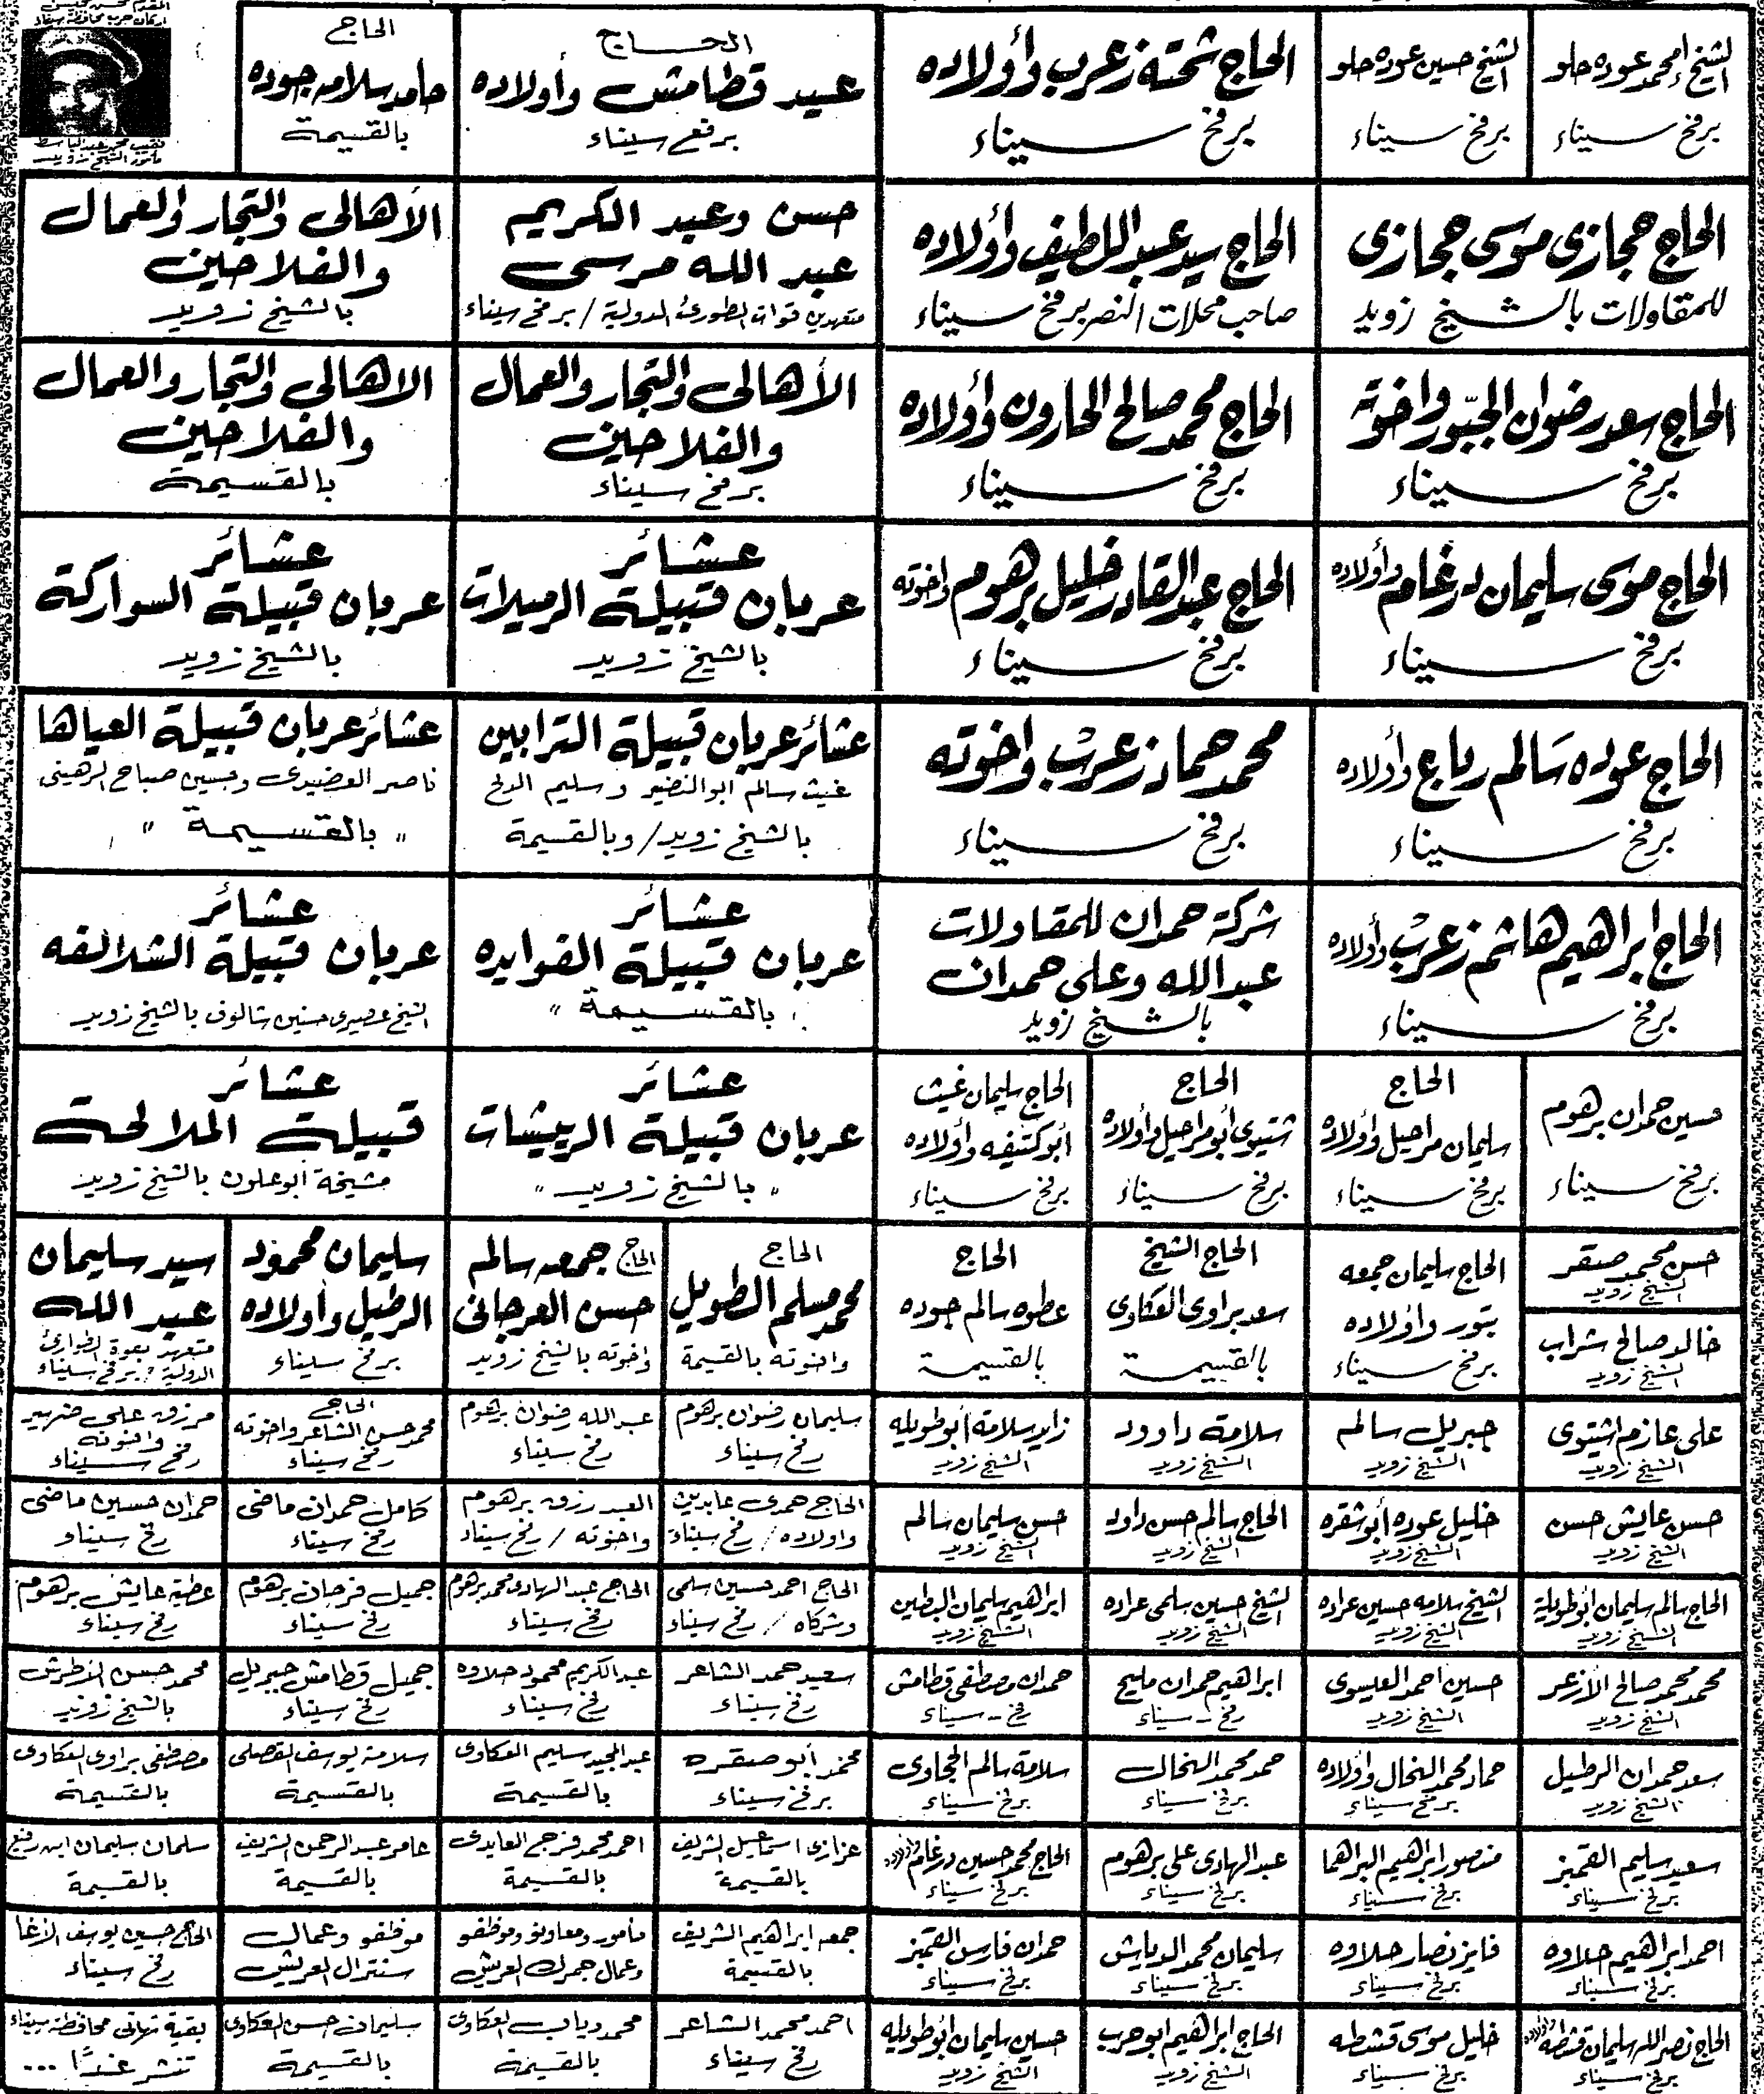 الشيخ امحمد عوده حلو
برفح سيناء
الشيخ حسين عوده حلو
برفح سيناء
الحاج شحته زعرب وأولاده
برفح سيناء
الحاج
عبيد قطامش وأولاده
برفح سيناء
الحاج
حامد سلامه جوده
بالقسيمة
نقيب محمد عبدالباسط
مأمور الشيخ زويد
الحاج حجازى موسى حجازى
للمقاولات بالشيخ زويد
الحاج سيد عبداللطيف وأولاده
صاحب محلات النصر برفح سيناء
حسن وعبد الكريم
عبد الله مرسى
متعهدين قوات الطورىء الدولية / برفح سيناء
الأهالى والتجار والعمال
والفلاحين
بالشيخ زويد
الحاج سعد رضوان الجبور واخوته
برفح سيناء
الحاج محمد صالح الحارون وأولاده
برفح سيناء
الأهالى والتجار والعمال
والفلاحين
برفح سيناء
الاهالى والتجار والعمال
والفلاحين
بالقسيمة
الحاج موسى سليمان درغام وأولاده
برفح سيناء
الحاج عبدالقادر خليل برهوم واخوته
برفح سيناء
عشائر
عربان قبيلة الرميلات
بالشيخ زويد
عشائر
عربان قبيلة السواركة
بالشيخ زويد
الحاج عوده سالم رباع وأولاده
برفح سيناء
محمد حماد زعرب واخوته
برفح سيناء
عشائر عربان قبيلة الترابين
غيث سالم ابوالنضير وسليم
بالشيخ زويد / وبالقسيمة
عشائر عربان قبيلة العياها
ناصر العضيدى وحسين صباح
" بالقسيمة "
الحاج ابراهيم هاشم زعرب وأولاده
برفح سيناء
شركة حمدان للمقاولات
عبدالله وعلى حمدان
بالشيخ زويد
عشائر
عربان قبيلة الفوايده
" بالقسيمة "
عشائر
عربان قبيلة الشلالفه
الشيخ حسنين شالوف بالشيخ زويد
حسين حمدان برهوم
برفح سيناء
الحاج
سليمان مراحيل وأولاده
برفح سيناء
الحاج
شتيوى أبومراحيل وأولاده
برفح سيناء
الحاج سليمان غيث
أبوكتيفه وأولاده
برفح سيناء
عشائر
عربان قبيلة الريشات
" بالشيخ زويد "
عشائر
قبيلة الملالحة
مشيخة أبوعلون بالشيخ زويد
حسن محمد صقر
الشيخ زويد
خالد صالح شراب
الشيخ زويد
الحاج سليمان جمعه
وأولاده
برفح سيناء
الحاج الشيخ
سعد براوى العكاوى
بالقسيمة
الحاج
عطوه سالم جوده
بالقسيمة
الحاج
محمد مسلم الطويل
واخوته بالقسيمة
الحاج جمعه سالم
حسن العرجانى
واخوته بالشيخ زويد
سليمان محمود
الرطيل وأولاده
برفح سيناء
سيد سليمان
عبد الله
متعهد بقوة الطوارئ
الدولية ، برفح سيناء
على عازم اشتيوى
الشيخ زويد
جبريل سالم
الشيخ زويد
سلامة داوود
الشيخ زويد
زايد سلامة أبوطويله
الشيخ زويد
سليمان رضوان برهوم
رفح سيناء
عبدالله رضوان برهوم
رفح سيناء
الحاج
محمد حسن الشاعر واخوته
رفح سيناء
مرزق على ضهير
واخوته
رفح سيناء
حسن عايش حسن
الشيخ زويد
خليل عوده أبوشقره
الشيخ زويد
الحاج سالم حسن داود
الشيخ زويد
حسن سليمان سالم
الشيخ زويد
الحاج حمدى عابدين
واولاده / رفح سيناء
العبد رزق برهوم
واخوته / رفح سيناء
كامل حمدان ماضى
رفح سيناء
حمدان حسين ماضى
رفح سيناء
الحاج سالم سليمان أبوطويلة
الشيخ زويد
الشيخ سلامه حسين عراده
الشيخ زويد
الشيخ حسين سلمى عراده
الشيخ زويد
ابراهيم سليمان البطين
الشيخ زويد
الحاج احمد حسين سلمى
وشركاه / رفح سيناء
الحاج عبدالهادى محمد برهوم
رفح سيناء
جميل فرحان برهوم
رفح سيناء
عطية عايش برهوم
رفح سيناء
محمد محمد صالح الأزعر
الشيخ زويد
حسين احمد العيسوى
الشيخ زويد
ابراهيم حمدان مليح
رفح - سيناء
حمدان مصطفى قطامش
رفح - سيناء
سعيد حمد الشاعر
رفح سيناء
عبدالكريم محمود حلاوه
رفح سيناء
جميل قطامش جبريل
رفح سيناء
محمد حسن الأطرش
بالشيخ زويد
سعد حمدان الرطيل
الشيخ زويد
حماد محمد النخال وأولاده
برفح سيناء
حمد محمد النخال
برفح سيناء
سلامة سالم الحجاوى
برفح سيناء
محمد أبو صقره
برفح سيناء
عبدالمجيد سليم العكاوى
بالقسيمة
سلامة يوسف القصلى
بالقسيمة
مصطفى براوى العكاوى
بالقسيمة
سعيد سليم القمبز
برفح سيناء
منصور ابراهيم البراهما
برفح سيناء
عبدالهادى على برهوم
برفح سيناء
الحاج محمد حسين درغام واولاده
برفح سيناء
عزازى اسماعيل الشريف
بالقسيمة
احمد محمد فرج العايدى
بالقسيمة
عامر عبدالرحمن الشريف
بالقسيمة
سلمان سليمان ابن رفيع
بالقسيمة
احمد ابراهيم حلاوه
برفح سيناء
فايز نصار حلاوه
برفح سيناء
سليمان محمد الدباش
برفح سيناء
حمدان فارس القمبز
برفح سيناء
جمعه ابراهيم الشريف
بالقسيمة
مأمور ومعاونو وموظفو
وعمال جمرك العريش
موظفو وعمال
سنترال العريش
الحاج حسين يوسف الأغا
رفح سيناء
الحاج نصرالله سليمان قشطه واولاده
برفح سيناء
خليل موسى قشطه
برفح سيناء
الحاج ابراهيم ابوحرب
الشيخ زويد
حسين سليمان أبوطويله
الشيخ زويد
احمد محمد الشاعر
رفح سيناء
محمد دياب العكاوى
بالقسيمة
سليمان حسن العكاوى
بالقسيمة
بقية تهانى محافظة سيناء
تنشر غدًا ...